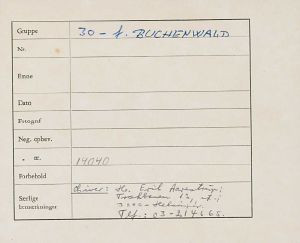 Gruppe 30 - f. BUCHENWALD
Nr.
Emne
Dato
Fotograf
Neg. opbev.
" nr. 14040
Forbehold
Særlige bemærkninger
Giver: Hr. Erik
12,
3000 - Helsingør.
Tlf.: 03-214665.